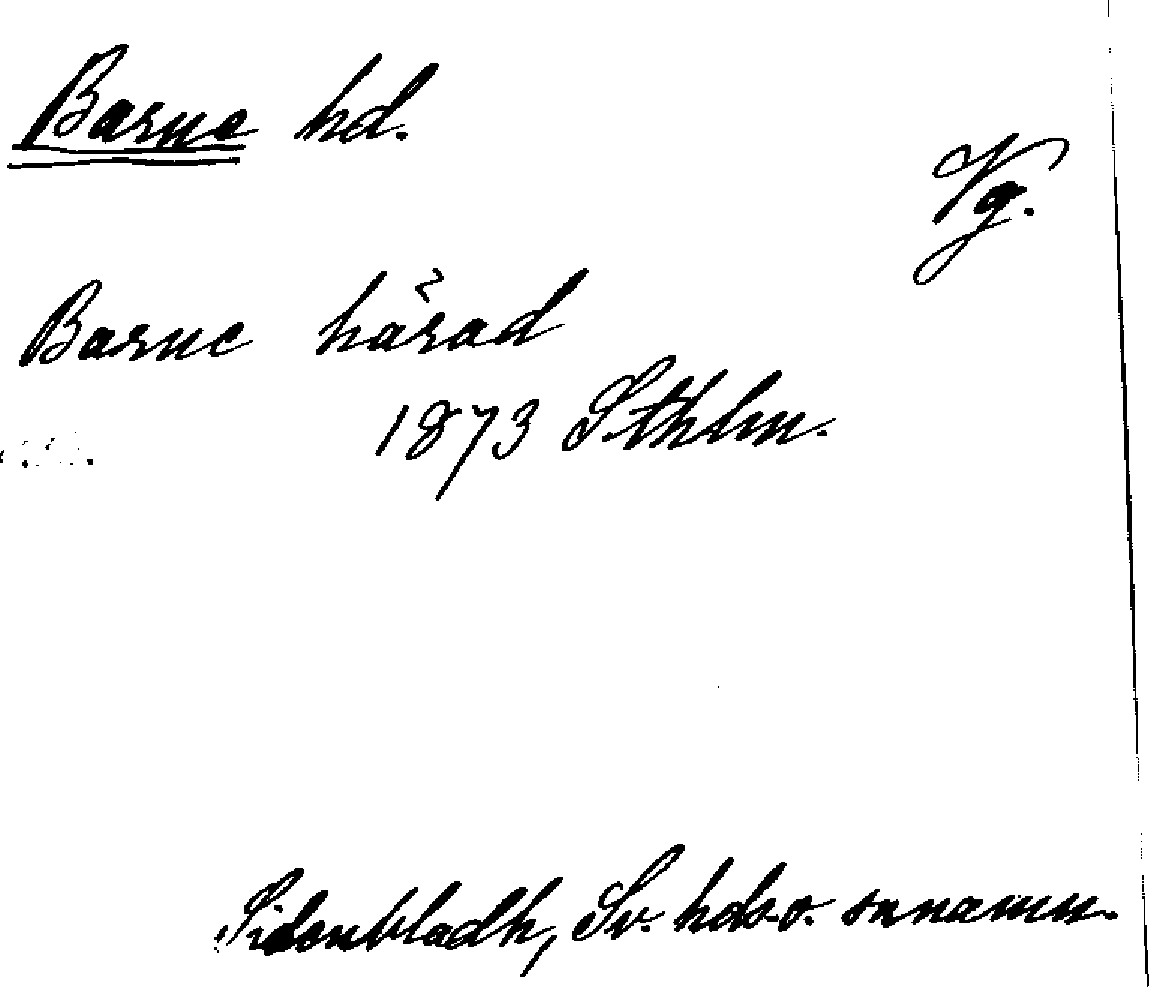 Barne hd.
Vg.
Barne härad
1873 Sthlm.
Sidenbladh, Sv. hds- o. snnamn.